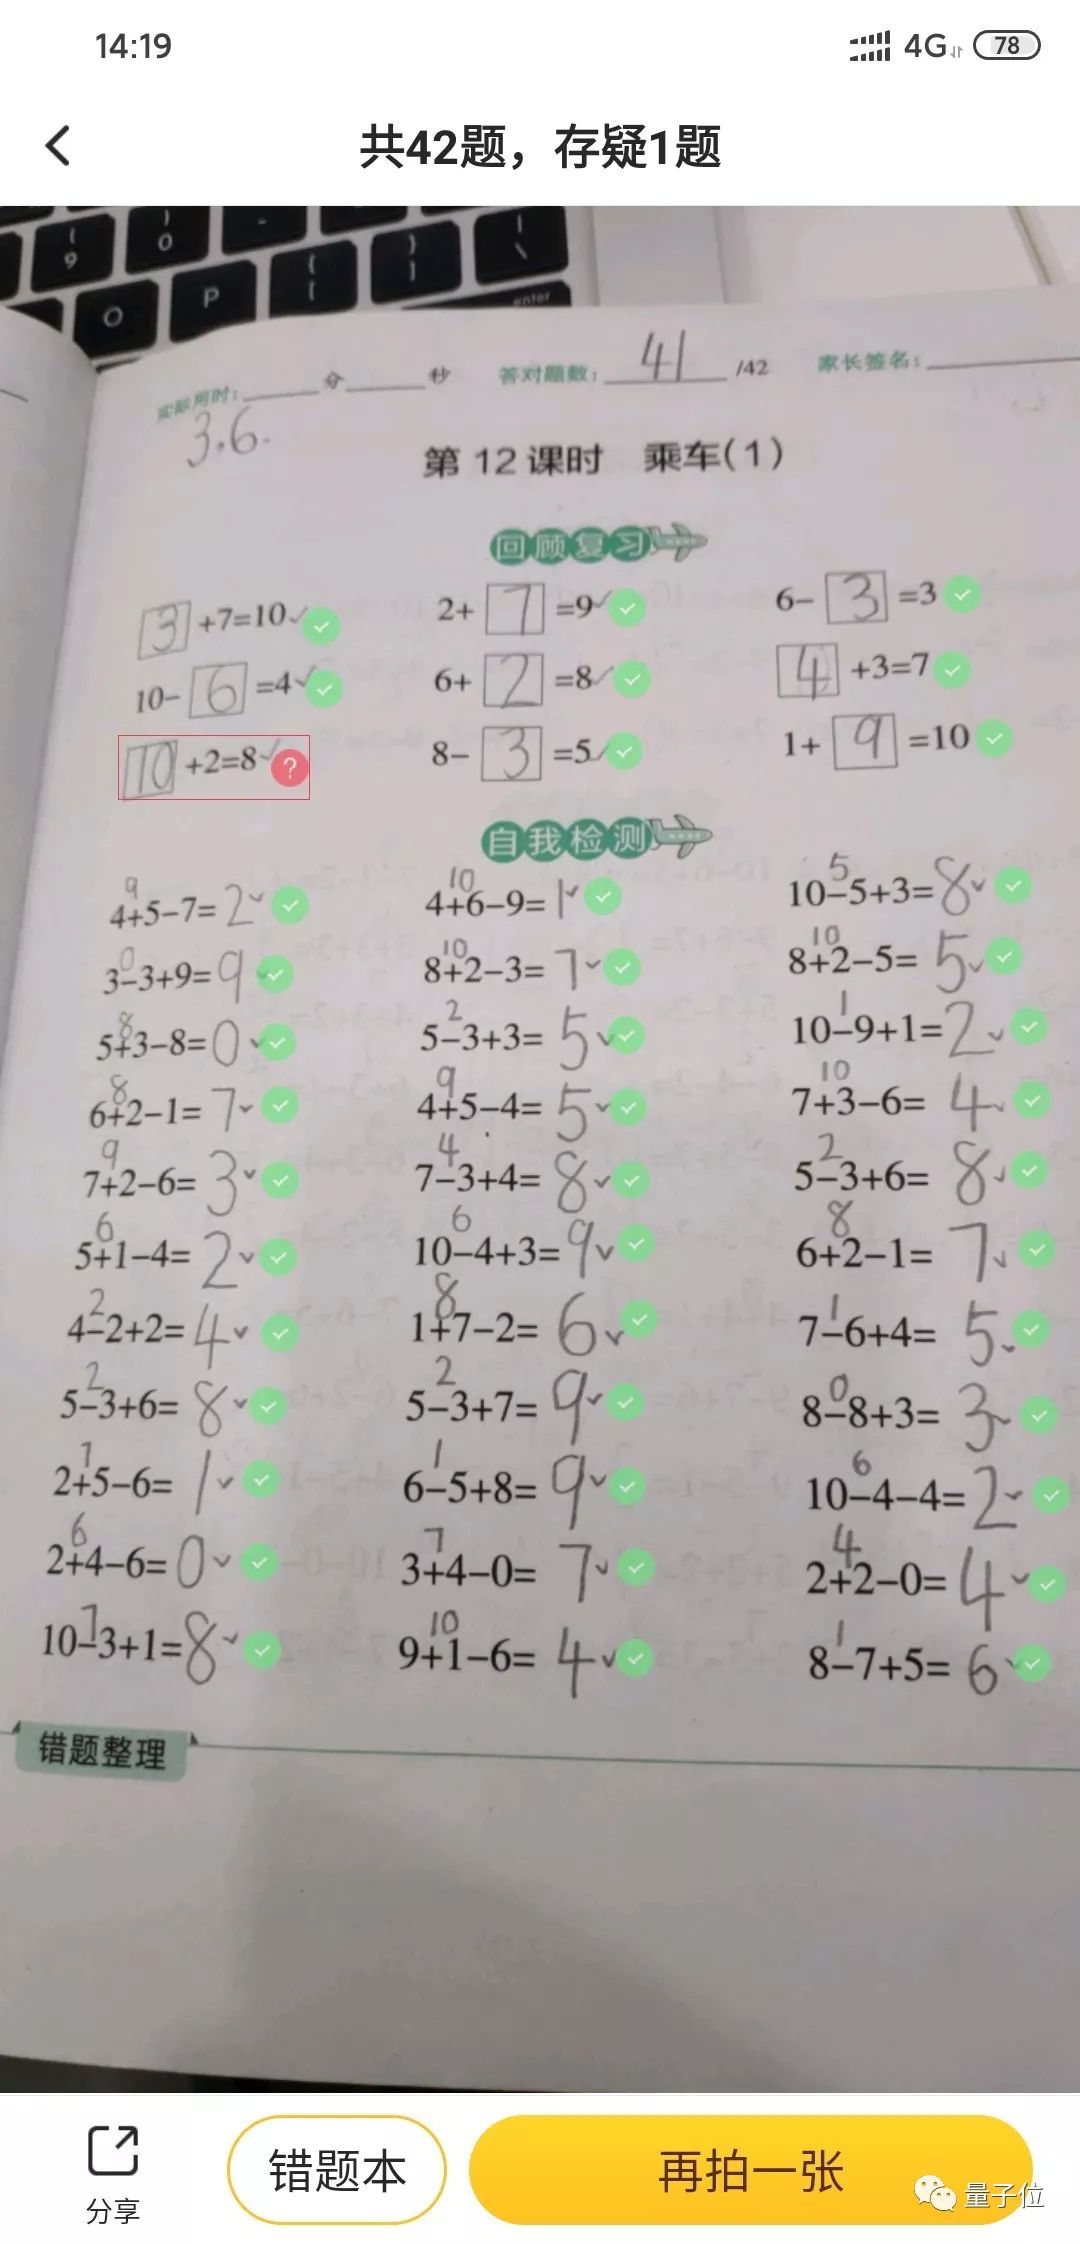 14:19 4G 78
共42题，存疑1题
( 9 ) 0 - | \
O P { [ } ] enter
实际用时：____分____秒 答对题数：41/42 家长签名：
3.6.
第12课时 乘车(1)
回顾复习
3+7=10 2+7=9 6-3=3
10-6=4 6+2=8 4+3=7
10+2=8 ? 8-3=5 1+9=10
自我检测
9 10 5
4+5-7=2 4+6-9=1 10-5+3=8
0 10 10
3-3+9=9 8+2-3=7 8+2-5=5
8 2 1
5+3-8=0 5-3+3=5 10-9+1=2
8 9 10
6+2-1=7 4+5-4=5 7+3-6=4
9 4 2
7+2-6=3 7-3+4=8 5-3+6=8
6 6 8
5+1-4=2 10-4+3=9 6+2-1=7
2 8 1
4-2+2=4 1+7-2=6 7-6+4=5
2 2 0
5-3+6=8 5-3+7=9 8-8+3=3
7 1 6
2+5-6=1 6-5+8=9 10-4-4=2
6 7 4
2+4-6=0 3+4-0=7 2+2-0=4
7 10 1
10-3+1=8 9+1-6=4 8-7+5=6
错题整理
分享 错题本 再拍一张
量子位